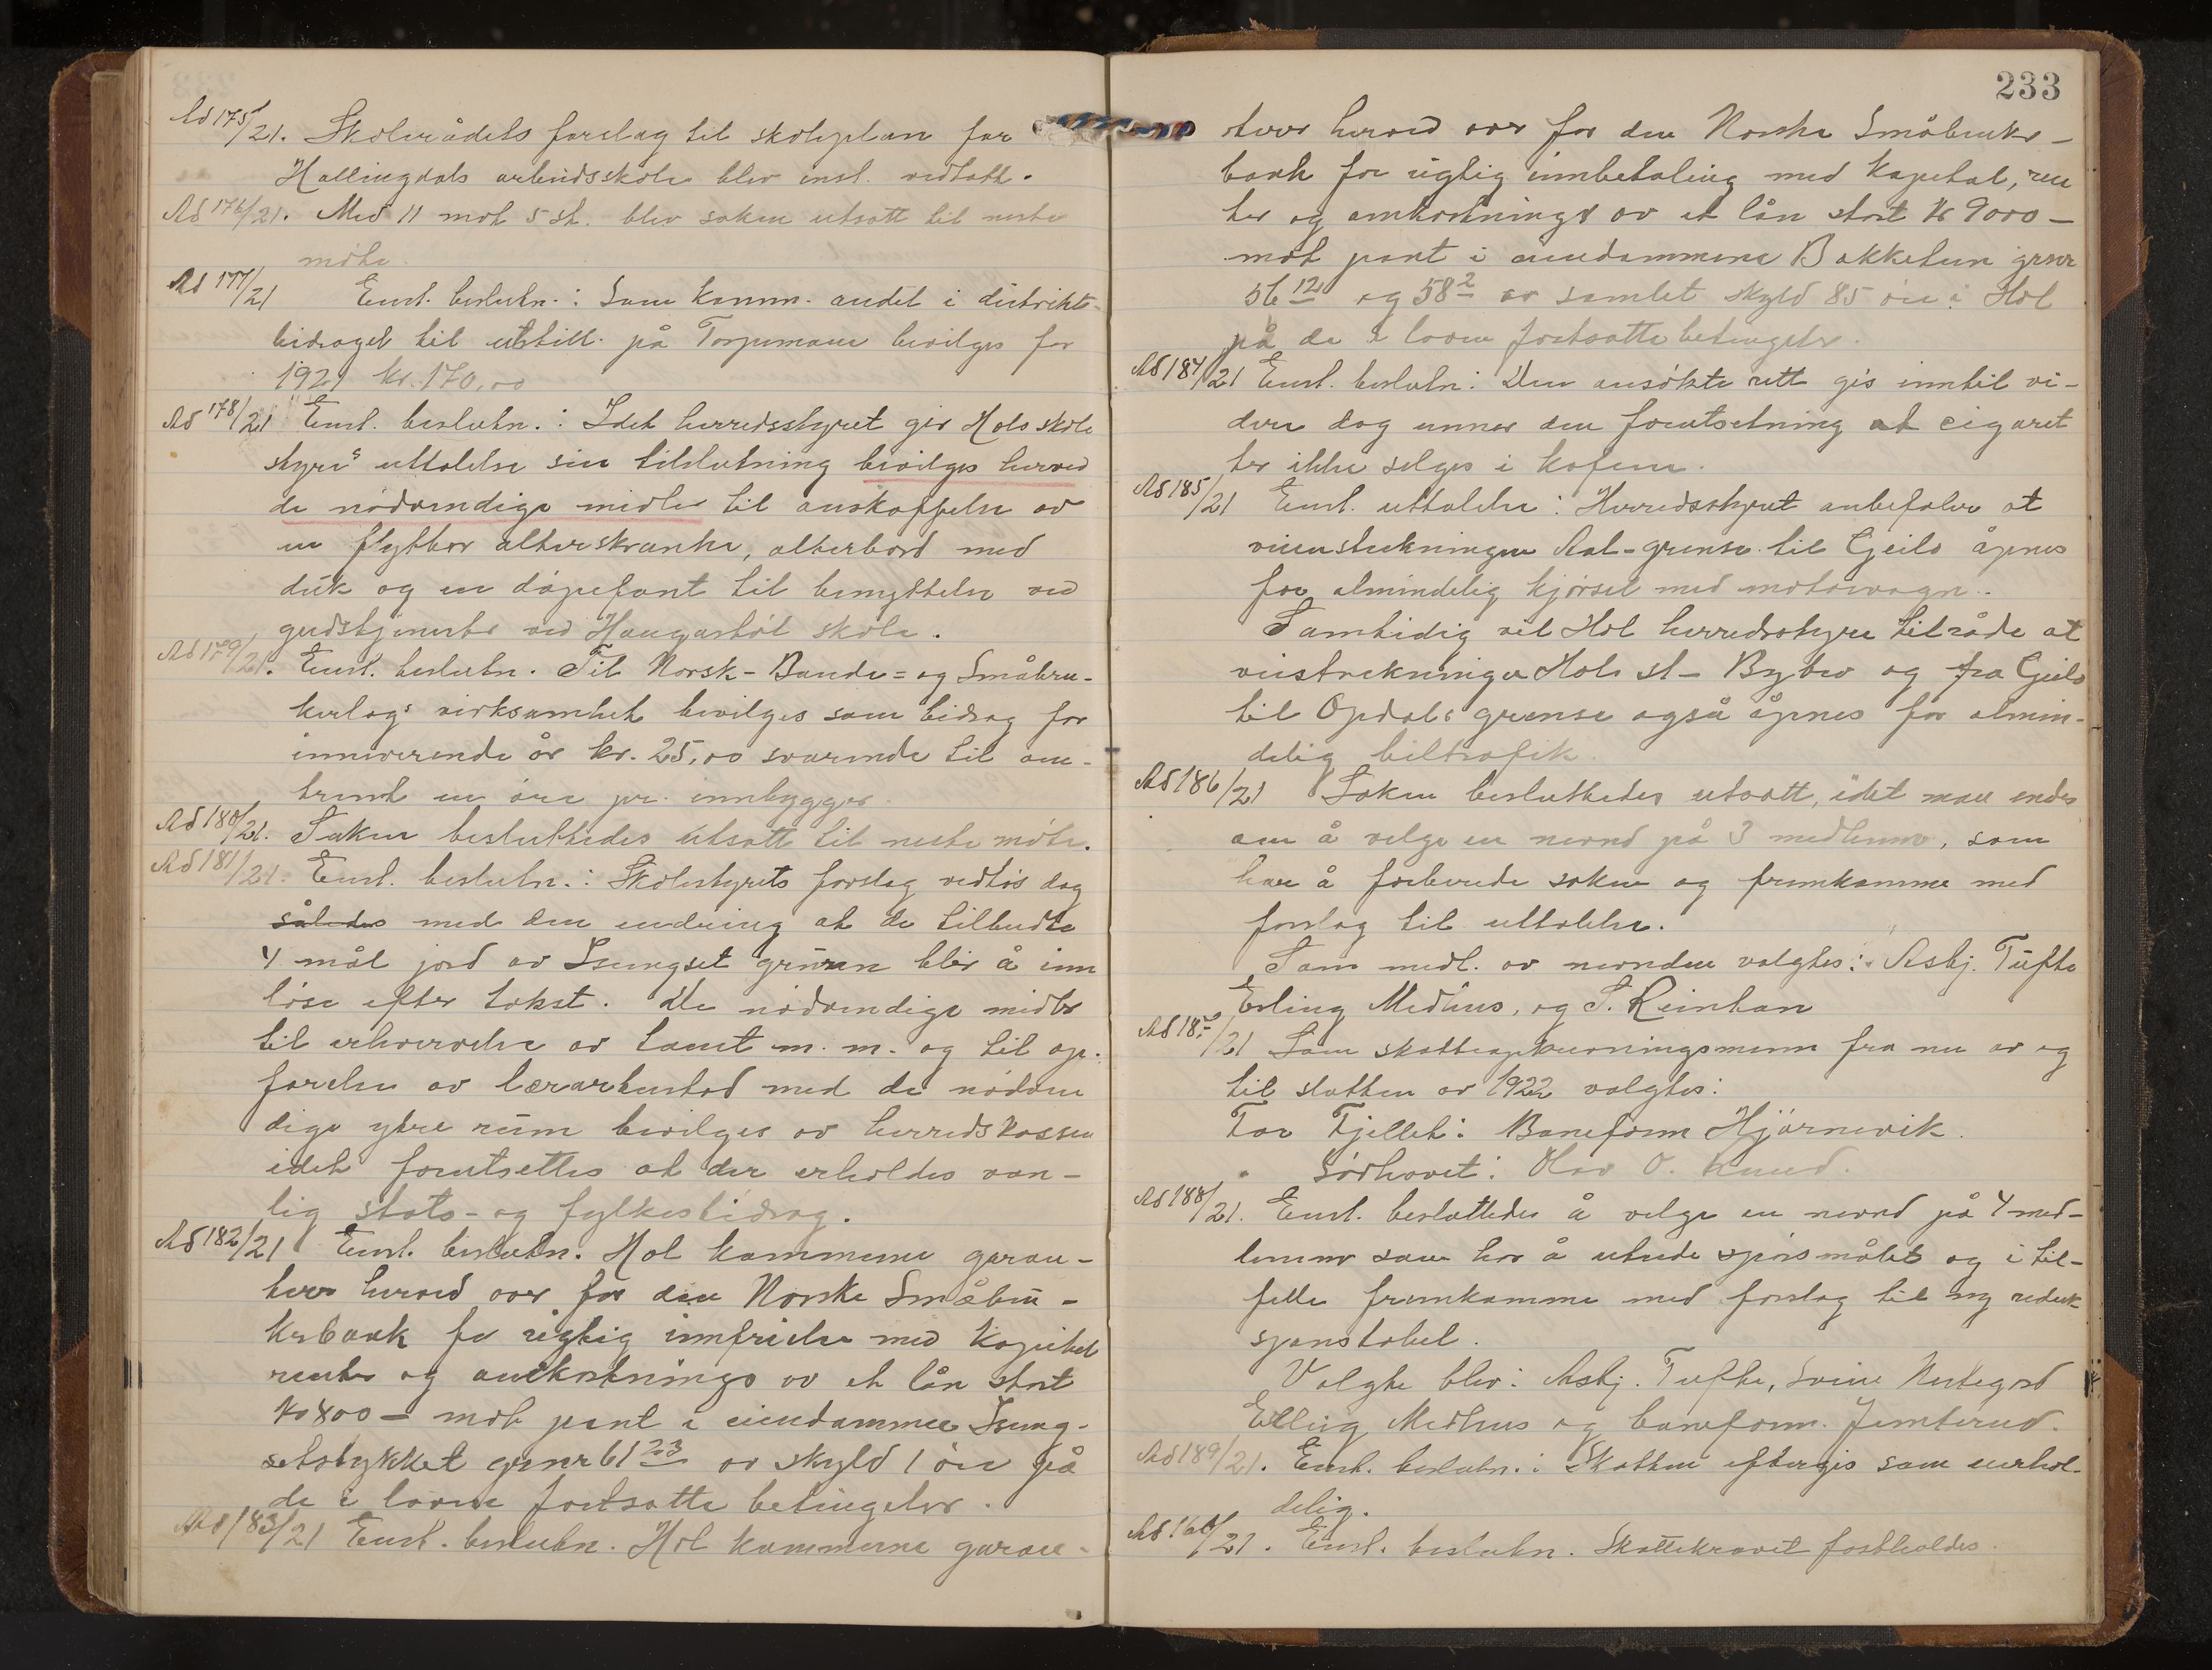 Ad 175/21. Skolerådets forslag til skoleplan for
Hallingdals arbeidsskole blev enst. vedtatt.
Ad 176/21. Med 11 mot 5 st. blev saken utsatt til neste
møte.
Ad 177/21 Enst. beslutn.: Som komm. andel i distrikts-
bidraget til utstill. på Torpomoen bevilges for
1921 kr. 170,00
Ad 178/21 Enst. beslutn.: Idet herredsstyret gir Hols skole
styres uttalelse sin tilslutning bevilges herved
de nødvendige midler til anskaffelse av
en flytbar alterskranke, alterbord med
duk og en døpefont til benyttelse ved
gudstjenester ved Haugastøl skole.
Ad 179/21. Enst. beslutn. Til Norsk-Bonde= og Småbru-
kerlags virksamhet bevilges som bidrag for
inneværende år kr. 25,00 svarende til om-
trent en øre pr. innbygger.
Ad 180/21. Saken besluttedes utsatt til neste møte.
Ad 181/21. Enst. beslutn.: Skolestyrets forslag vedtas dog
således med den endring at de tilbudte
4 mål jord av Isungset grunn blir å inn
løse efter takst. De nødvendige midler
til erhvervelse av tomt m. m. og til op-
førelse av lærarbustad med de nødven
dige ytre rum bevilges av herredskassen
idet forutsettes at der erholdes van-
lig stats- og fylkesbidrag.
Ad 182/21 Enst. beslutn. Hol kommune garan-
terer herved over for den Norske Småbru-
kerbank for rigtig innfrielse med kapital
renter og omkostninger av et lån stort
kr 800 - mot pant i eiendommen Isung-
setstykket grnr 61 23 av skyld 1 øre på
de i loven fortsatte betingelser.
Ad 183/21 Enst. beslutn. Hol kommune garan-
233
terer herved over for den Norske Småbruker-
bank for rigtig innbetaling med kapital, ren
ter og omkostninger av et lån stort kr 9000 -
mot pant i eiendommene Bakketun grnr
56 12 og 58 2 av samlet skyld 85 øre i Hol
på de i loven fortsatte betingelser.
Ad 184/21 Enst. beslutn: Den ansøkte rett gis inntil vi-
dere dog unner den forutsetning at cigaret
ter ikke selges i kafeen.
Ad 185/21 Enst. uttalelse: Herredsstyret anbefaler at
veistrekningen Aal-grense til Geilo åpnes
for almindelig kjørsel med motorvogn.
Samtidig vil Hol herredsstyre tilråde at
veistrekninger Hol st - Bybro og fra Geilo
til Opdals grense også åpnes for almin-
delig biltrafik.
Ad 186/21 Saken besluttedes utsatt, idet man enes
om å velge en nevnd på 3 medlemer, som
har å forberede saken og fremkomme med
forslag til uttalelse.
Som medl. av nevnden valgtes: Asbj. Tufte
Erling Medhus, og S. Reinton
Ad 187/21 Som skatteopkrevningsmenn fra nu av og
til slutten av 1922 valgtes:
For Fjellet: Baneform Hjørnevik.
" Sørhovet: Olav O. Knud.
Ad 188/21. Enst. besluttedes å velge en nevnd på 4 med-
lemmer som har å utrede spørsmålet og i til-
felle fremkomme med forslag til ny reduk
sjonstabel.
Valgte blev: Asbj. Tufte, Svein Nestegard
Elling Medhus og baneform. Jemterud.
Ad 189/21. Enst. beslutn.: Skatten eftergis som uerhol-
delig.
Ad 160/21. Enst. beslutn. Skattekravet fastholdes.